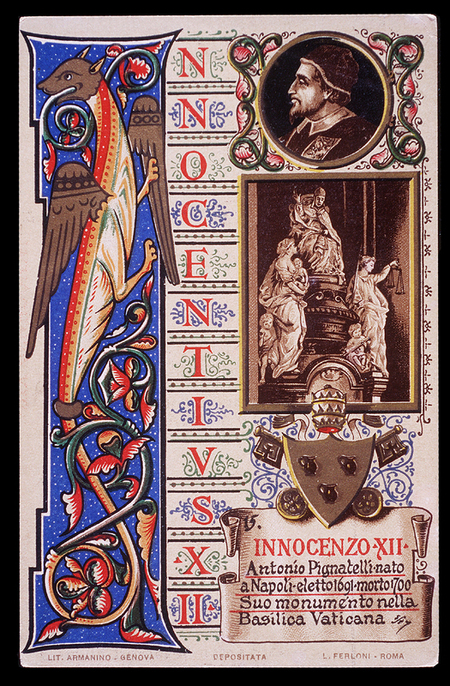 INNOCENTIVS XII
INNOCENZO·XII·
Antonio Pignatelli·nato
a Napoli·eletto 1691·morto 1700
Suo monumento nella
Basilica Vaticana
LIT. ARMANINO - GENOVA DEPOSITATA L. FERLONI - ROMA